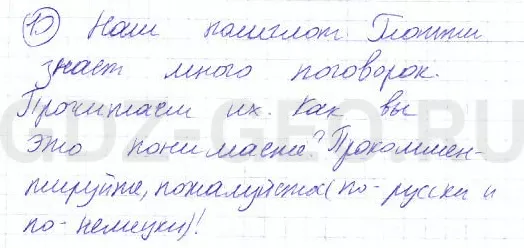 10 Наш полиглот Потти
знает много поговорок.
Прочитаем их. Как вы
это понимаете? Прокоммен-
тируйте, пожалуйста (по-русски и
по-немецки)!
GDZ-GEO.RU